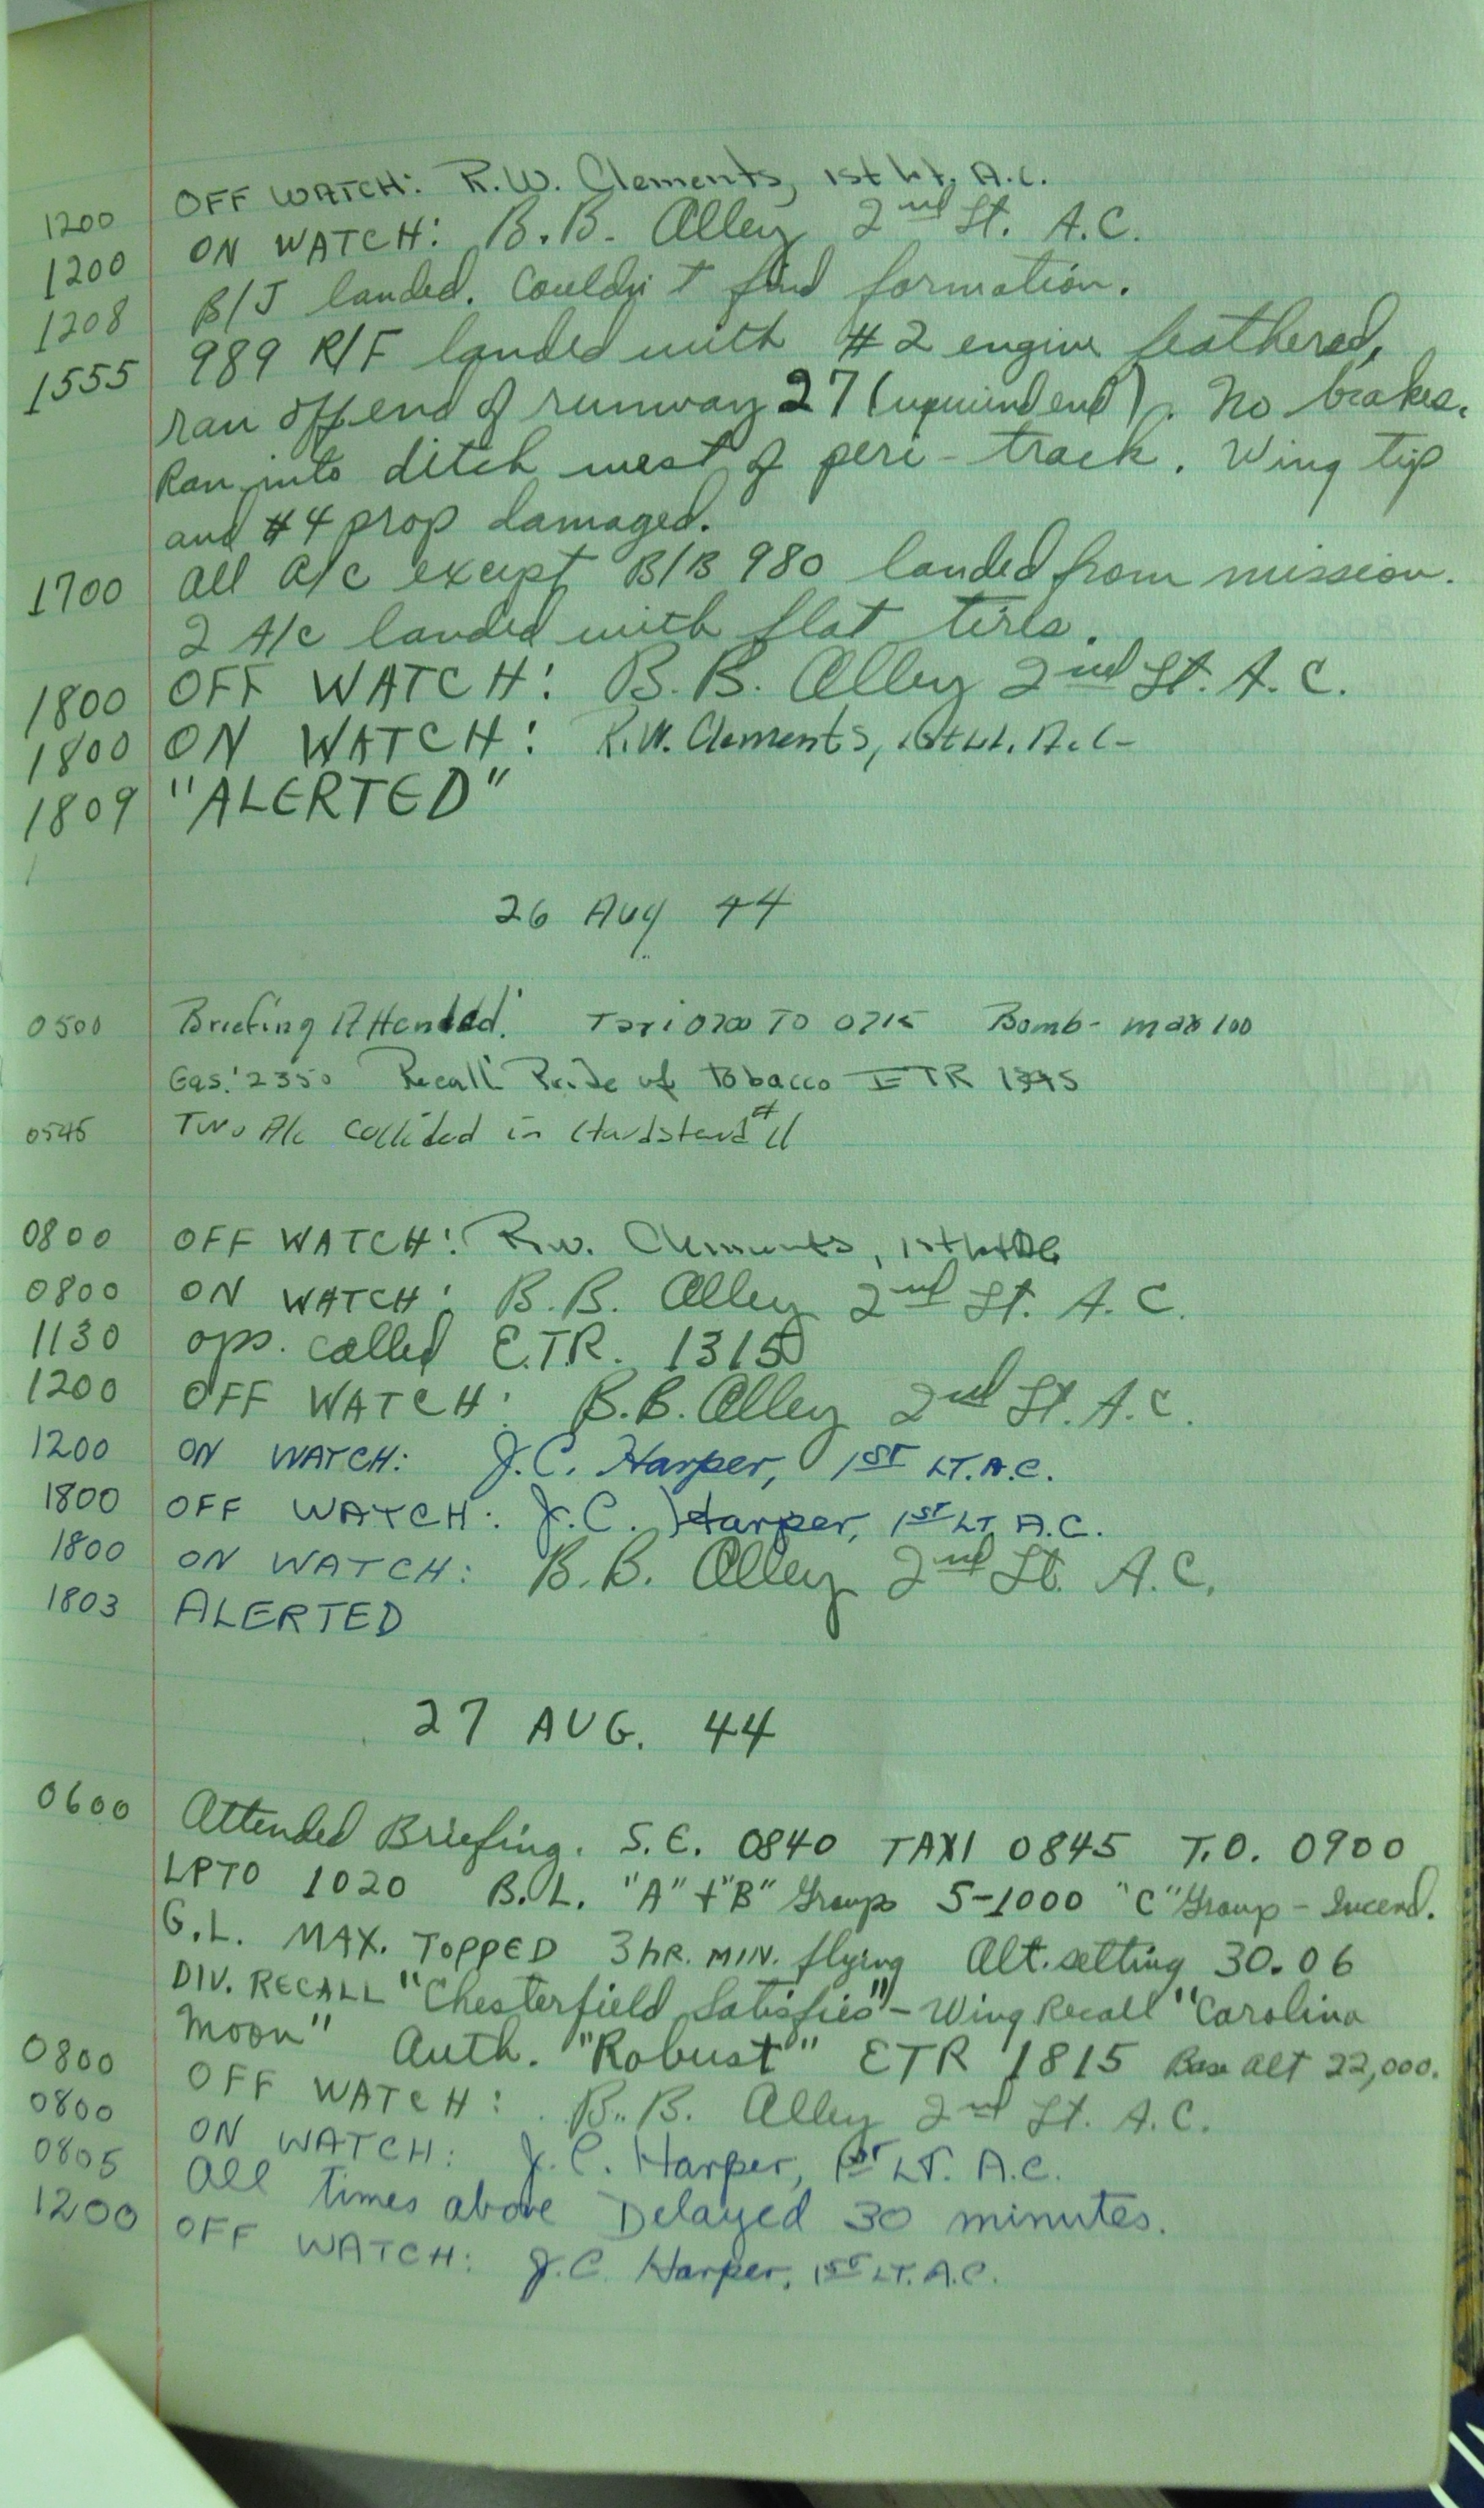 1200 OFF WATCH: R.W. Clements, 1st Lt. A.C.
1200 ON WATCH: B.B. Alley 2nd Lt. A.C.
1208 B/J landed. Couldn't find formation.
1555 989 R/F landed with #2 engine feathered,
ran off end of runway 27 (upwind end). No brakes.
Ran into ditch west of peri-track. Wing tip
and #4 prop damaged.
1700 All A/C except B/B 980 landed from mission.
2 A/C landed with flat tires.
1800 OFF WATCH: B.B. Alley 2nd Lt. A.C.
1800 ON WATCH: R.W. Clements, 1st Lt. A.C.
1809 "ALERTED"
26 Aug 44
0500 Briefing Attended: Taxi 0700 TO 0715 Bomb- max 100
Gas: 2350 Recall Pride of Tobacco ETR 1345
0545 Two A/c collided in Hardstand #11
0800 OFF WATCH: R.W. Clements, 1st Lt AC
0800 ON WATCH: B.B. Alley 2nd Lt. A.C.
1130 ops. called E.T.R. 1315
1200 OFF WATCH: B.B. Alley 2nd Lt. A.C.
1200 ON WATCH: J.C. Harper, 1ST LT. A.C.
1800 OFF WATCH: J.C. Harper, 1ST LT. A.C.
1800 ON WATCH: B.B. Alley 2nd Lt. A.C.
1803 ALERTED
27 AUG. 44
0600 Attended Briefing. S.E. 0840 TAXI 0845 T.O. 0900
LPTO 1020 B.L. "A" + "B" Groups 5-1000 "C" Group - Incend.
G.L. MAX. TOPPED 3 HR. MIN. flying Alt. setting 30.06
DIV. RECALL "Chesterfield Satisfies" - Wing Recall "Carolina
Moon" Auth. "Robust" ETR 1815 Base alt 22,000.
0800 OFF WATCH: B.B. Alley 2nd Lt. A.C.
0800 ON WATCH: J.C. Harper, 1ST LT. A.C.
0805 All times above Delayed 30 minutes.
1200 OFF WATCH: J.C. Harper, 1ST LT. A.C.